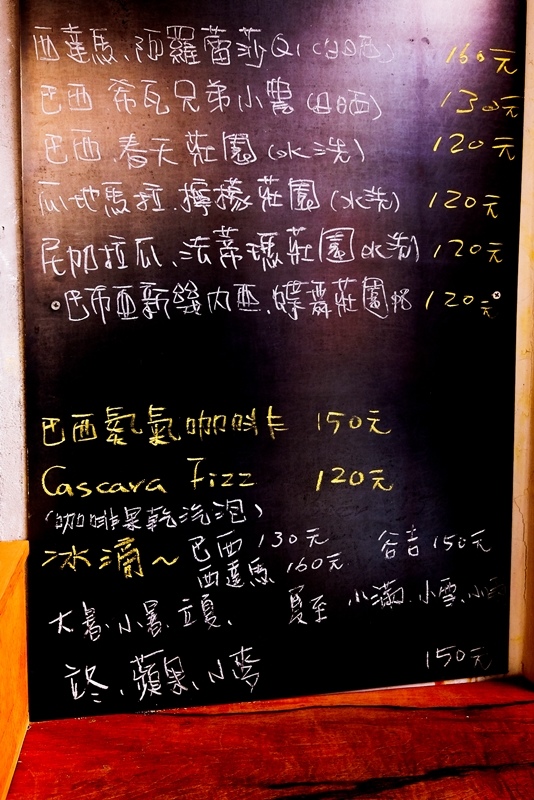 西達馬、阿羅蕾莎Q1(日晒) 160元
巴西 希瓦兄弟小農(日晒) 130元
巴西.春天莊園(水洗) 120元
瓜地馬拉.檸檬莊園(水洗) 120元
尼加拉瓜、法蒂瑪莊園(水洗) 120元
巴布亞新幾內亞.蝶舞莊園 120元
巴西氮氣咖啡 150元
Cascara Fizz 120元
(咖啡果乾汽泡)
冰滴~ 巴西 130元 谷雨 150元
西達馬 160元
大暑.小暑.立夏、 夏至 小滿.小雪.
立冬、蘋果、小麥 150元